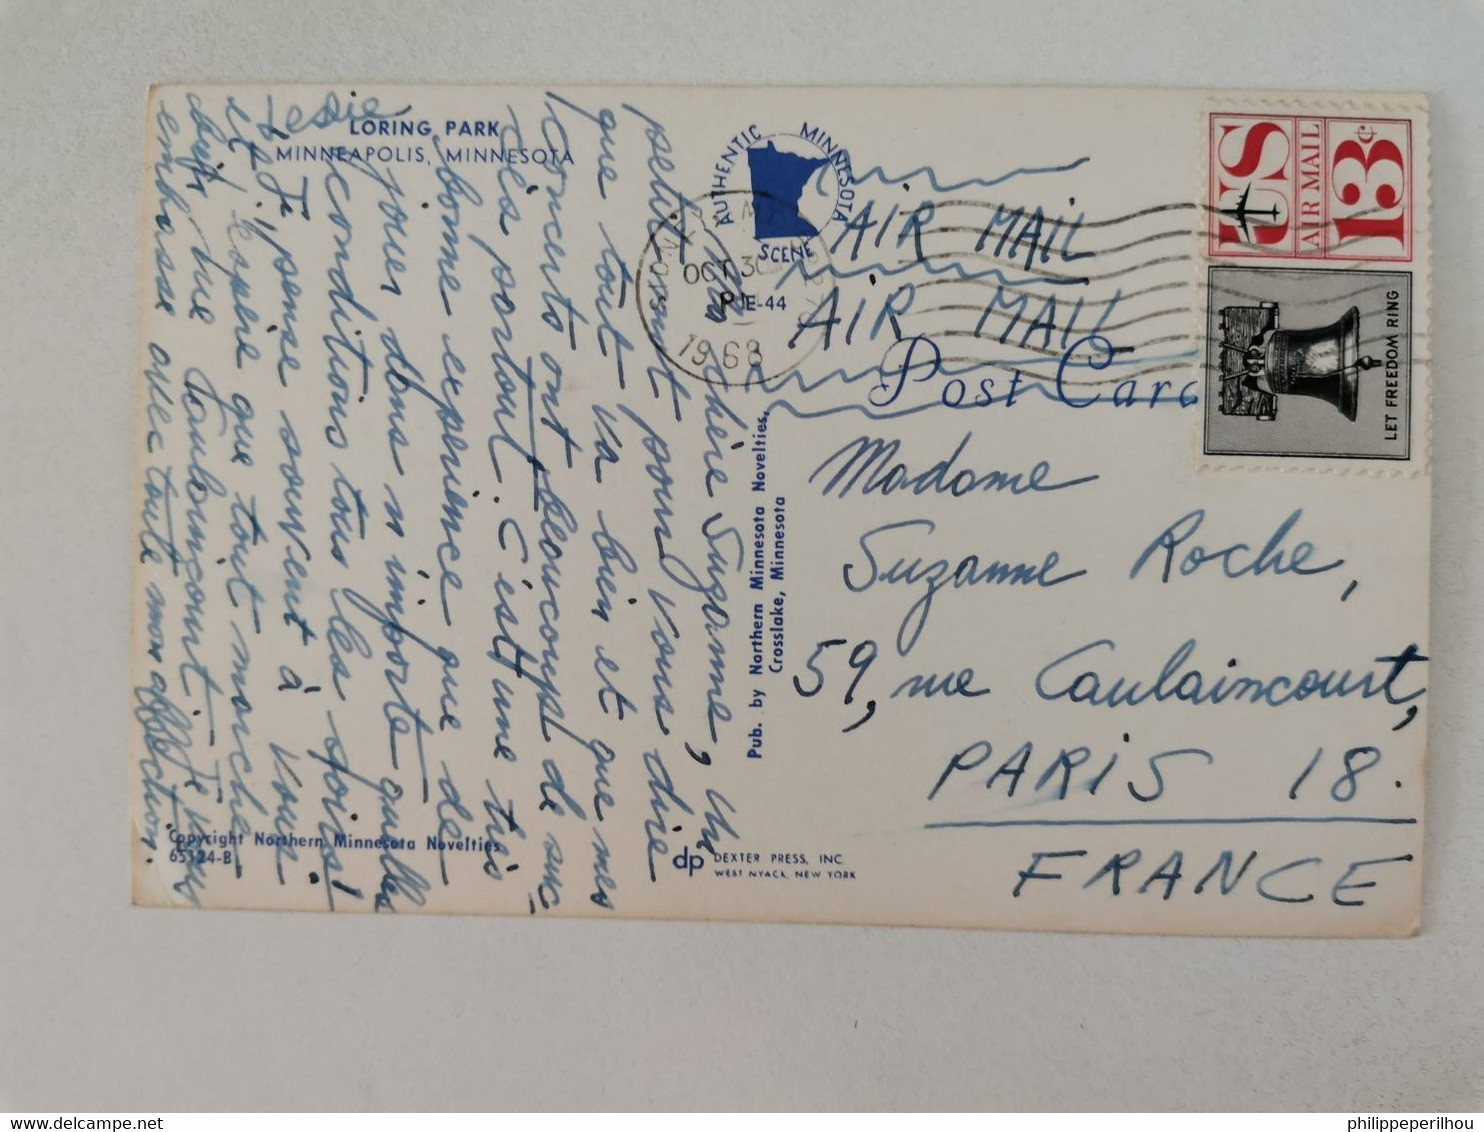 LORING PARK
MINNEAPOLIS, MINNESOTA
AUTHENTIC MINNESOTA
SCENE
PIE-44
OCT 30
1968
US
AIR MAIL
13¢
LET FREEDOM RING
AIR MAIL
AIR MAIL
Post Card
Madame
Suzanne Roche,
59, rue Caulaincourt,
PARIS 18.
FRANCE
Pub. by Northern Minnesota Novelties,
Crosslake, Minnesota
dp DEXTER PRESS, INC.
WEST NYACK, NEW YORK
Ma chère Suzanne, Un
petit mot pour vous dire
que tout va bien et que mes
Concerts ont beaucoup de suc-
cès partout. C'est une très
bonne expérience que de
jouer dans n'importe quelles
conditions tous les soirs!
Je pense souvent à vous
et j'espère que tout marche
rue Caulaincourt. Je vous
embrasse avec toute mon affection.
Copyright Northern Minnesota Novelties
65124-B
delcampe.net
philippeperilhou